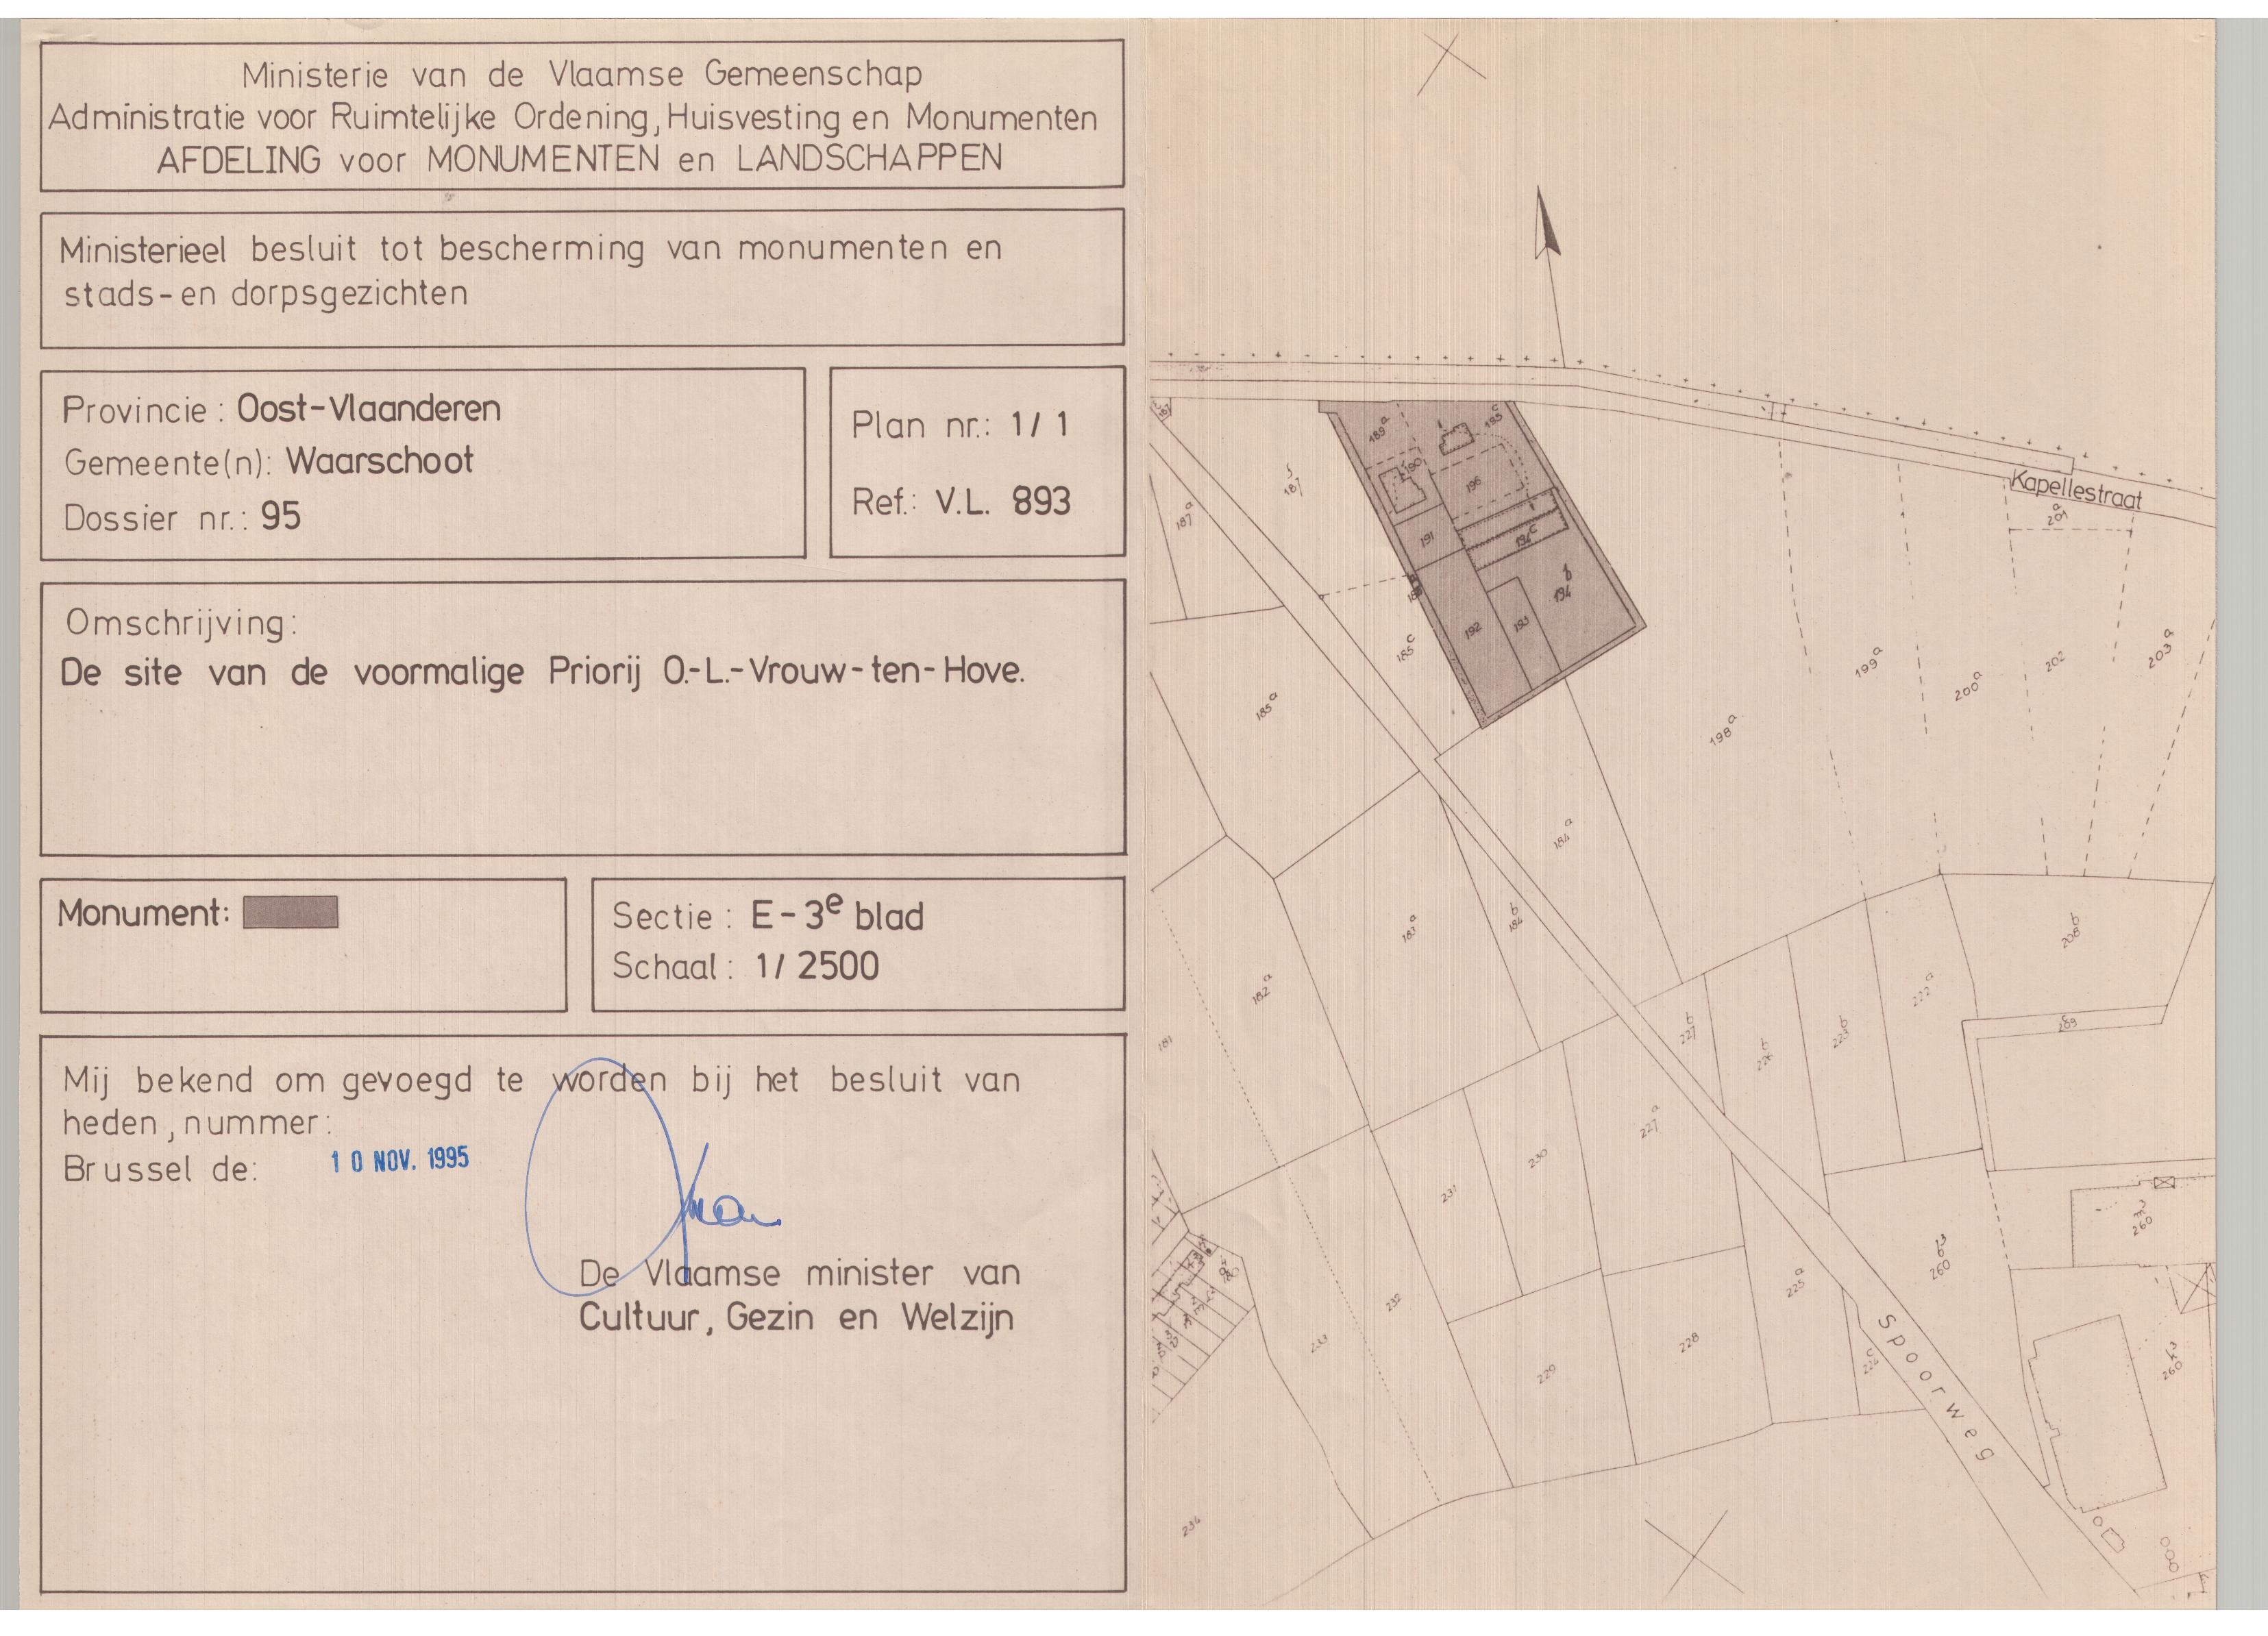 Ministerie van de Vlaamse Gemeenschap
Administratie voor Ruimtelijke Ordening, Huisvesting en Monumenten
AFDELING voor MONUMENTEN en LANDSCHAPPEN
Ministerieel besluit tot bescherming van monumenten en
stads-en dorpsgezichten
Provincie: Oost-Vlaanderen
Gemeente(n): Waarschoot
Dossier nr.: 95
Plan nr.: 1/1
Ref.: V.L. 893
Omschrijving:
De site van de voormalige Priorij O.-L.-Vrouw-ten-Hove.
Monument:
Sectie: E-3e blad
Schaal: 1/2500
Mij bekend om gevoegd te worden bij het besluit van
heden, nummer:
Brussel de: 10 NOV. 1995
De Vlaamse minister van
Cultuur, Gezin en Welzijn
Kapellestraat
189a
195c
190
196
187a
191
194c
194b
192
193
185c
185a
201a
199a
200a
202
203a
198a
184a
183a
184b
182a
181
208b
222a
223b
227b
227a
230
231
232
233
229
228
225a
234
260
260
260
Spoorweg